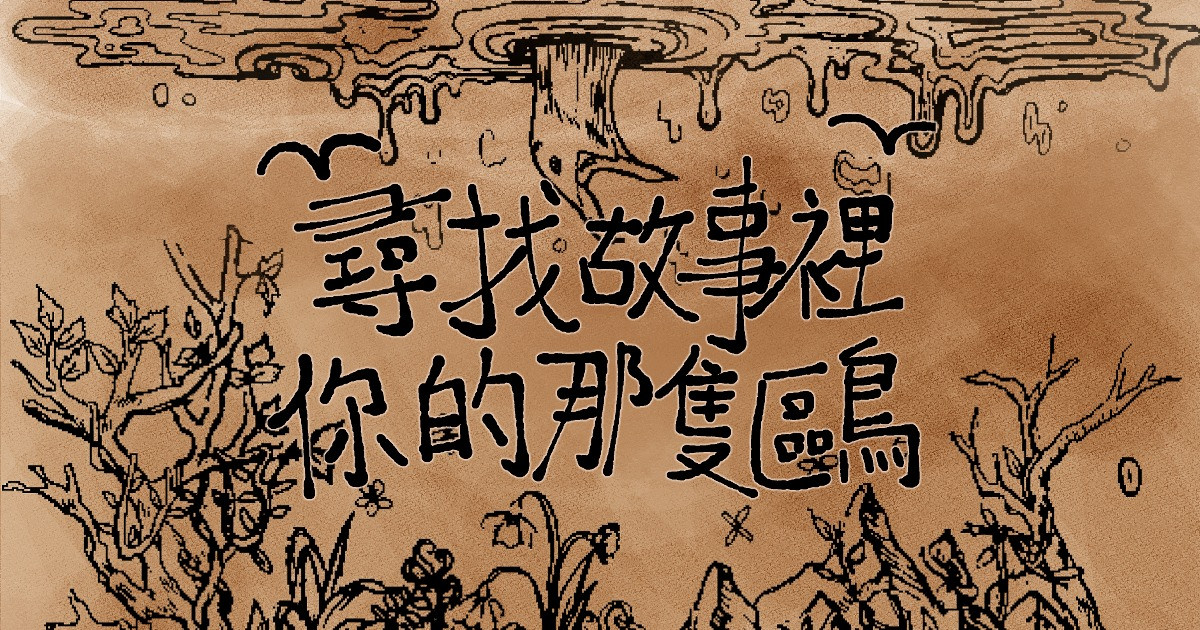 尋找故事裡
你的那隻鷗